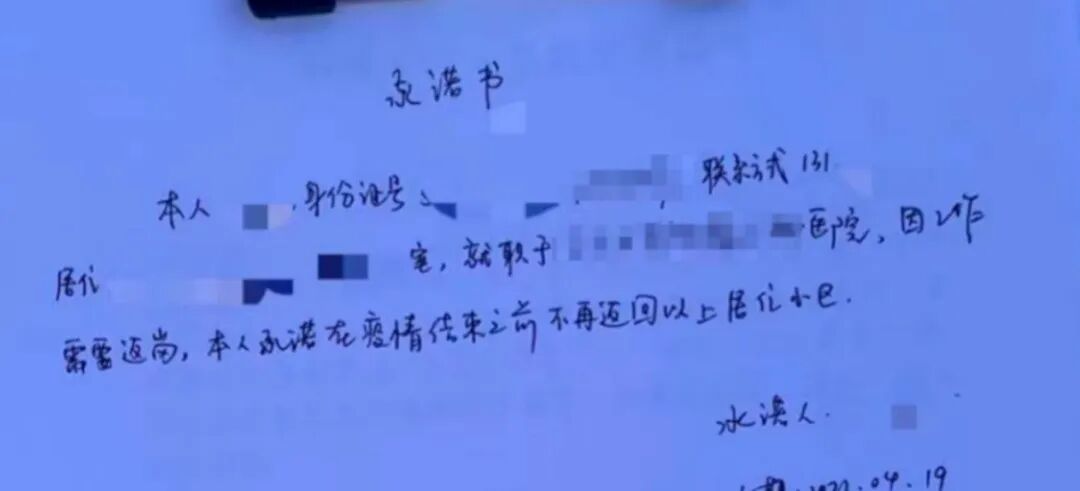 承诺书
本人 ,身份证号: , 联系方式131
居住 室,就职于 医院,因工作
需需返岗,本人承诺在疫情结束之前不再返回以上居住小区.
承诺人:
2022.04.19